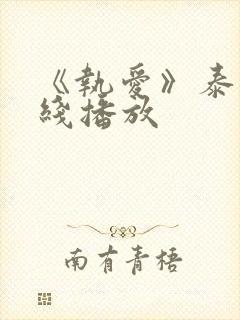 《執愛》泰
綫播放
南有青梧